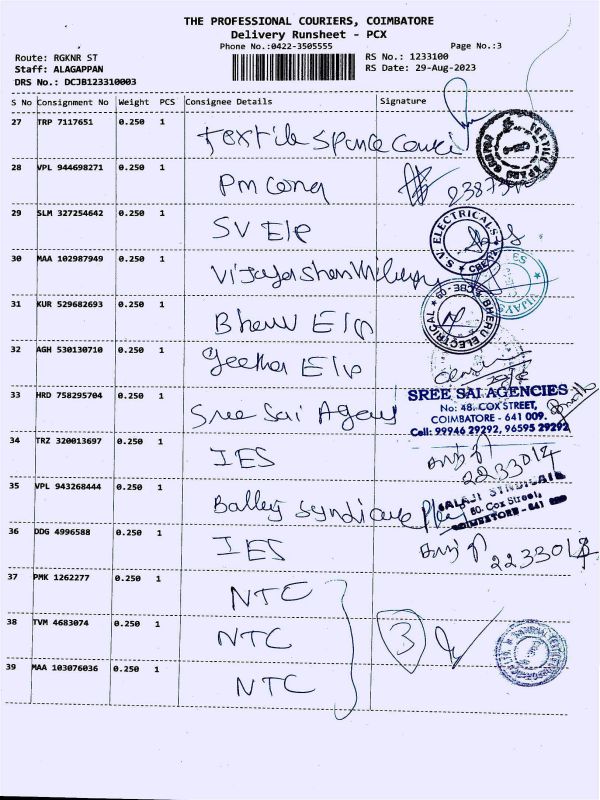 THE PROFESSIONAL COURIERS, COIMBATORE
Delivery Runsheet - PCX
Phone No.:0422-3505555
Page No.:3
Route: RGKNR ST
RS No.: 1233100
Staff: ALAGAPPAN
RS Date: 29-Aug-2023
DRS No.: DCJB123310003
S No Consignment No Weight PCS Consignee Details Signature
27 TRP 7117651 0.250 1 Textile
28 VPL 944698271 0.250 1 Pm
29 SLM 327254642 0.250 1 SV Elp
S.V. ELECTRICALS
30 MAA 102987949 0.250 1
31 KUR 529682693 0.250 1 Elp
BHERU ELECTRICAL
32 AGH 530130710 0.250 1 Geetha Elp
33 HRD 758295704 0.250 1 Sree Sai
SREE SAI AGENCIES
No: 48, COX STREET,
COIMBATORE - 641 009.
Cell: 99946 29292, 96595 29292
34 TRZ 320013697 0.250 1 IES
2233014
35 VPL 943268444 0.250 1
BALAJI SYNDICATE
80, Cox Street,
COIMBATORE - 641
36 DDG 4996588 0.250 1 IES
2233014
37 PMK 1262277 0.250 1 NTC
38 TVM 4683074 0.250 1 NTC 3
39 MAA 103076036 0.250 1 NTC